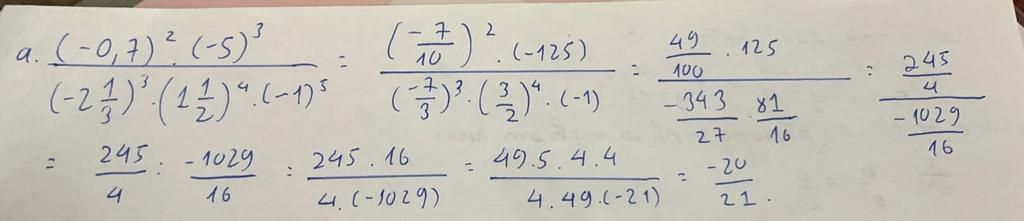 a. \frac{(-0,7)^2 . (-5)^3}{(-2\frac{1}{3})^3 . (1\frac{1}{2})^4 . (-1)^5} = \frac{(\frac{-7}{10})^2 . (-125)}{(\frac{-7}{3})^3 . (\frac{3}{2})^4 . (-1)} = \frac{\frac{49}{100} . 125}{\frac{-343}{27} . \frac{81}{16}} = \frac{\frac{245}{4}}{\frac{-1029}{16}}
= \frac{245}{4} : \frac{-1029}{16} = \frac{245 . 16}{4 . (-1029)} = \frac{49 . 5 . 4 . 4}{4 . 49 . (-21)} = \frac{-20}{21}.